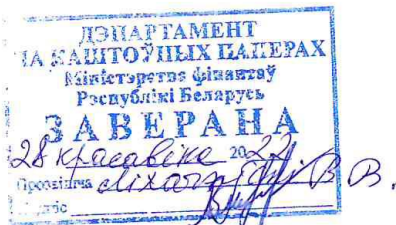 ДЭПАРТАМЕНТ
ПА КАШТОЎНЫХ ПАПЕРАХ
Міністэрства фінансаў
Рэспублікі Беларусь
ЗАВЕРАНА
28 красавіка 2022
Прозвішча В.В.